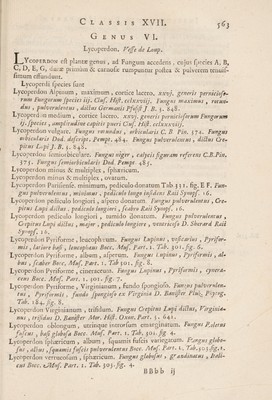 CLASSIS XVII. 563
GENUS VI.
Lycoperdon. Vesse de Loup.
LYCOPERDON est plantæ genus, ad Fungum accedens, cujus species A, B,
C, D, E, G, duræ primùm & carnosæ rumpuntur postea & pulverem tenuis-
simum effundunt.
Lycoperdi species sunt
Lycoperdon Alpinum, maximum, cortice lacero.
Fungorum species iij. Clus. Hist. Fungus maximus, rotun-
dus, pulverulentus, dictus Germanis Pfofist J. B. 3. 848.
Lycoperdon medium, cortice lacero. generis perniciosorum Fungorum
Clus. Hist.
Lycoperdon vulgare. Fungus rotundus, orbicularis C. B. Pin. 374. Fungus
orbicularis Dod. descript. Pempt. 484. Fungus pulverulentus, dictus Cre-
pitus Lupi J. B. 3. 848.
Lycoperdon semiorbiculare. Fungus niger, calycis figuram referens C.B.Pin.
373. Fungus semiorbicularis Dod. Pempt. 485.
Lycoperdon minus & multiplex, sphæricum.
Lycoperdon minus & multiplex, ovatum.
Lycoperdon Parisiense, minimum, pediculo donatum Tab. 331. fig. E F. Fun-
gus pulverulentus, minimus, pediculo longo insidens Raii Synop. 16.
Lycoperdon pediculo longiori, aspero donatum. Fungus pulverulentus, Cre-
pitus Lupi dictus, pediculo longiori, scabro Raii Synop. 16.
Lycoperdon pediculo longiori, tumido donatum. Fungus pulverulentus,
Crepitus Lupi dictus, major, pediculo longiore, ventricoso D. Sherard Raii
Synop. 16.
Lycoperdon Pyriforme, leucophæum. Fungus Lupinus, Pyrifor-
mis, leucophæus Bocc. Mus. Part. 1. Tab. 301. fig. 6.
Lycoperdon Pyriforme, album, asperum. Fungus Lupinus, Pyriformis, al-
bus, scaber Bocc. Mus. Part. 1. Tab. 301. fig. 8.
Lycoperdon Pyriforme, cineraceum. Fungus Lupinus, Pyriformis, cinera-
ceus Bocc. Mus. Part. 1. 301. fig. 7.
Lycoperdon Pyriforme, Virginianum, fundo spongioso. Fungus pulverulen-
tus, Pyriformis, fundo spongioso ex Virginia D. Banister Pluk. Phytog.
Tab. 184. fig. 8.
Lycoperdon Virginianum, trifidum. Fungus Crepitus Lupi dictus, Virginia-
nus, trifidus D. Banister Mor. Hist. Oxon. Part. 3. 641.
Lycoperdon oblongum, utrinque introrsum emarginatum. Fungus
Bocc. Mus. Part. 1. Tab. 305. fig. 4.
Lycoperdon sphæricum, album, squamis fuscis variegatum. Fungus globo-
sus, albus, squamis fuscis pulverulentus Bocc. Mus. Part. 1. Tab. 301. fig. 2.
Lycoperdon verrucosum, sphæricum. Fungus globosus, Boli-
cus Bocc. Mus. Part. 1. Tab. 305. fig. 4.
BBbb ij